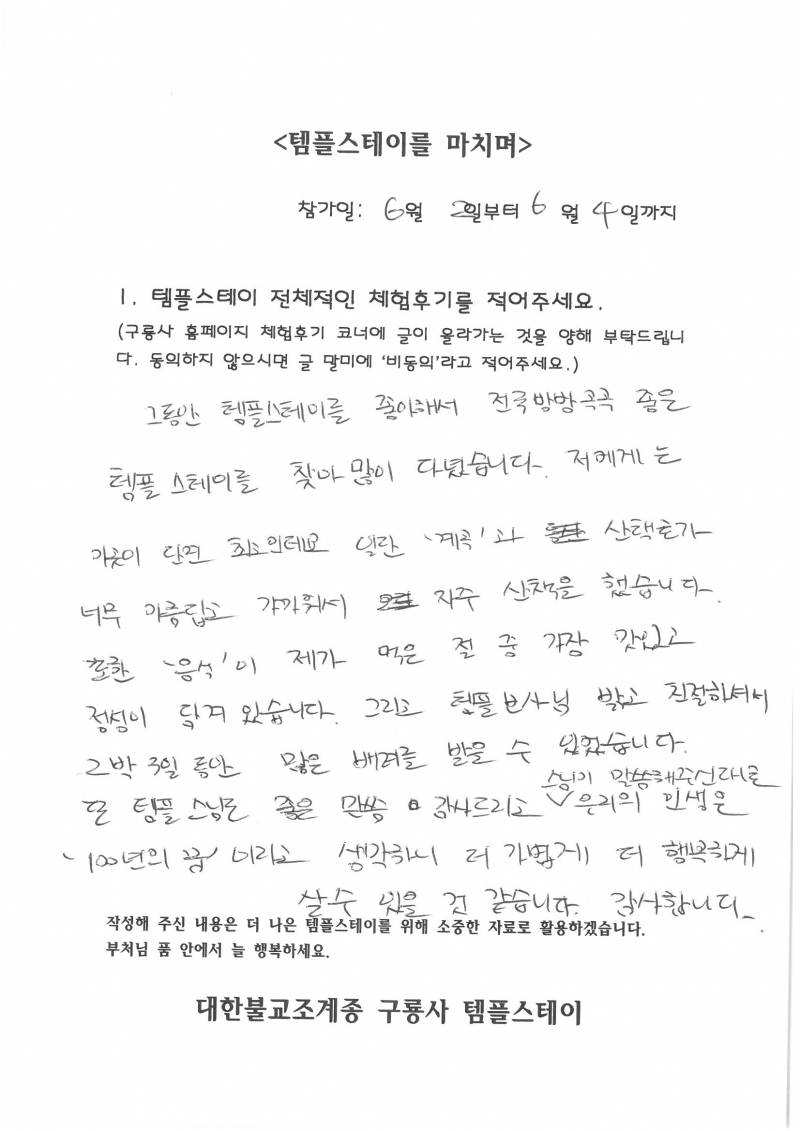 <템플스테이를 마치며>
참가일: 6월 2일부터 6월 4일까지
1. 템플스테이 전체적인 체험후기를 적어주세요.
(구룡사 홈페이지 체험후기 코너에 글이 올라가는 것을 양해 부탁드립니
다. 동의하지 않으시면 글 말미에 '비동의'라고 적어주세요.)
그동안 템플스테이를 좋아해서 전국방방곡곡 좋은
템플 스테이를 찾아 많이 다녔습니다. 저에게는
이곳이 단연 최고인데요 일단 '계곡'과 산책로가
너무 아름답고 가까워서 자주 산책을 했습니다.
또한 '음식'이 제가 먹은 절 중 가장 맛있고
정성이 담겨 있습니다. 그리고 템플 봉사님 밝고 친절하셔서
2박 3일 동안 많은 배려를 받을 수 있었습니다.
스님이 말씀해주신대로
또 템플 스님도 좋은 말씀 감사드리고 ∨ 우리의 인생은
'100년의 꿈' 이라고 생각하니 더 가볍게 더 행복하게
살 수 있을 것 같습니다. 감사합니다.
작성해 주신 내용은 더 나은 템플스테이를 위해 소중한 자료로 활용하겠습니다.
부처님 품 안에서 늘 행복하세요.
대한불교조계종 구룡사 템플스테이